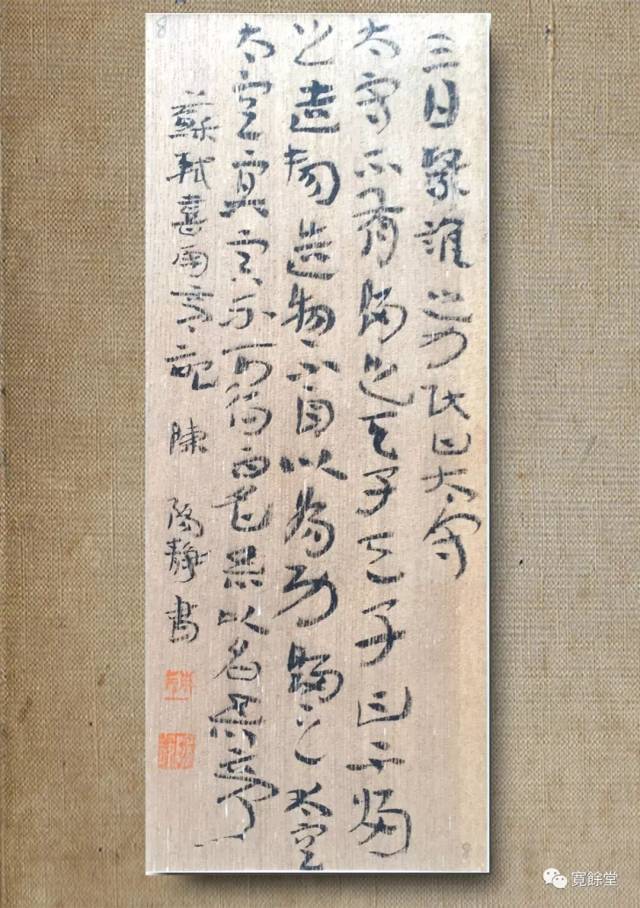 8
三日繄誰之力民曰太守
太守不有歸之天子天子曰不歸
之造物造物不自以為功歸之太空
太空冥冥不可得而名吾以名吾亭
蘇軾喜雨亭記 陳 靜書
8
寬餘堂